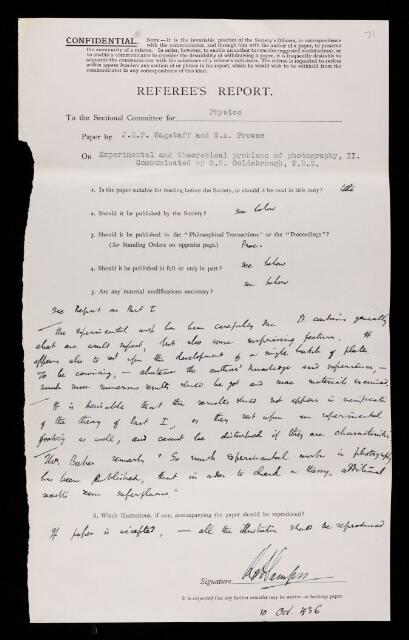 71
CONFIDENTIAL. NOTE—It is the invariable practice of the Society's Officers, in correspondence
with the communicator, and through him with the author of a paper, to preserve
the anonymity of a referee. In order, however, to enable an author to consider suggested modifications, or
to enable a communicator to consider the desirability of withdrawing a paper, it is frequently desirable to
acquaint the communicator with the substance of a referee's criticism. The referee is requested to enclose
within square brackets any section of or phrase in his report, which he would wish to be withheld from the
communicator in any correspondence of this kind.
REFEREE'S REPORT.
To the Sectional Committee for Physics
Paper by J.E.P. Wagstaff and W.A. Prowse
On Experimental and theoretical problems of photography, II.
Communicated by G.R. Goldsbrough, F.R.S.
1. Is the paper suitable for reading before the Society, or should it be read in title only? title
2. Should it be published by the Society? see below
3. Should it be published in the "Philosophical Transactions" or the "Proceedings"?
(See Standing Orders on opposite page.) Proc.
4. Should it be published in full or only in part? see below
5. Are any material modifications necessary? see below
See Report on Part I
The experimental work has been carefully done. It contains generally
what one would expect, but also some surprising features. It
appears also to rest upon the development of a single batch of plates.
To be convincing, — whatever the authors' knowledge and experience, —
much more numerous results should be got and more materials examined.
It is desirable that the results should not appear as verification
of the theory of Part I, as they rest upon an experimental
footing as well, and cannot be disturbed if they are characteristic.
Thos. Baker remarks "So much experimental work in photography
has been published, that in order to check a theory, additional
results seem superfluous."
6. Which illustrations, if any, accompanying the paper should be reproduced?
If paper is accepted, — all the illustrations should be reproduced
Signature R A Sampson
It is requested that any further remarks may be written on foolscap paper.
10 Oct. 1936